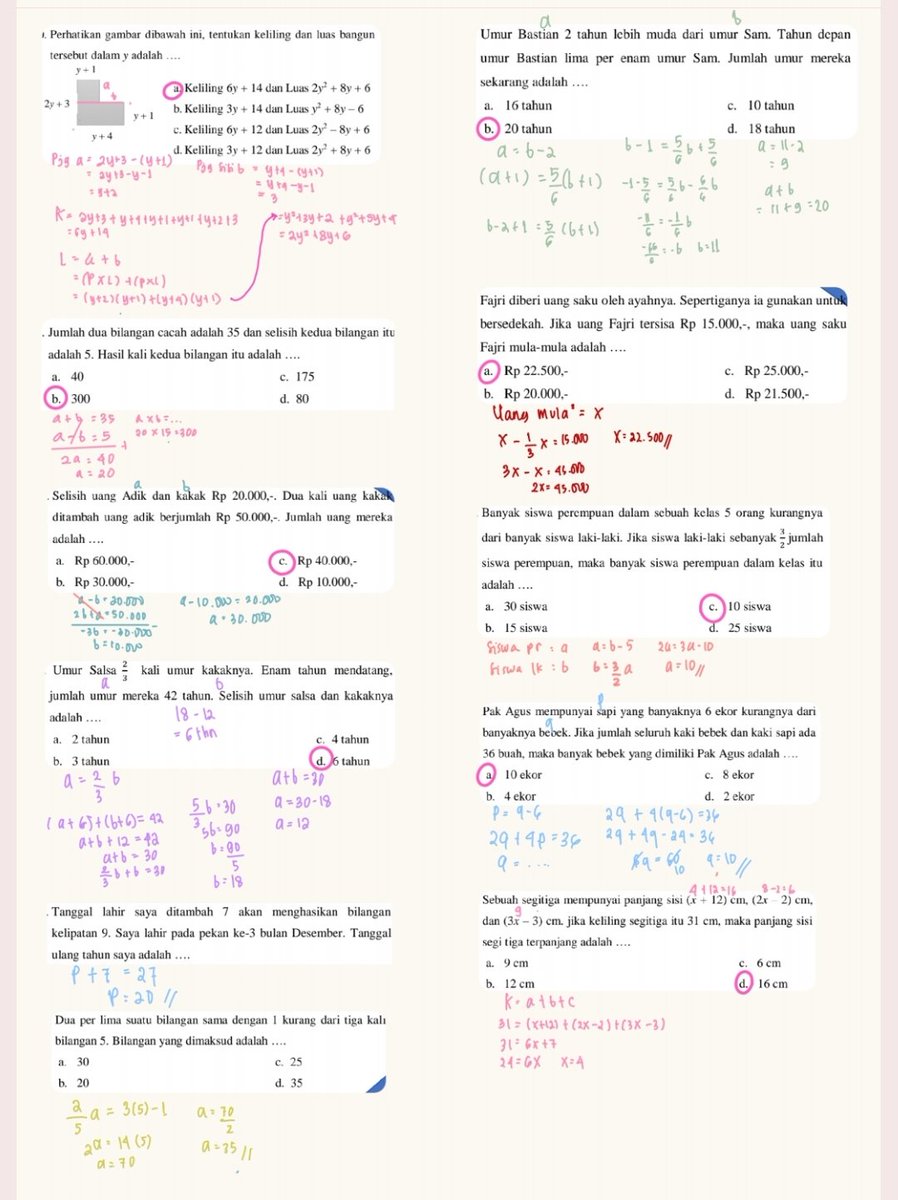 ). Perhatikan gambar dibawah ini, tentukan keliling dan luas bangun
tersebut dalam y adalah ….
y + 1
a
2y + 3
b
y + 1
y + 4
a. Keliling 6y + 14 dan Luas 2y² + 8y + 6
b. Keliling 3y + 14 dan Luas y² + 8y – 6
c. Keliling 6y + 12 dan Luas 2y² – 8y + 6
d. Keliling 3y + 12 dan Luas 2y² + 8y + 6
Pjg a = 2y+3 - (y+1)
= 2y+3-y-1
= y+2
= y+4 - (y+1)
= y+4-y-1
= 3
K = 2y+3+y+4+y+1+y+1+y+2+3
= 6y+14
L = a + b
= (P x L) + (p x l)
= (y+2)(y+1)+(y+4)(y+1)
= y²+3y+2 + y²+5y+4
= 2y²+8y+6
. Jumlah dua bilangan cacah adalah 35 dan selisih kedua bilangan itu
adalah 5. Hasil kali kedua bilangan itu adalah ….
a. 40
c. 175
b. 300
d. 80
a + b = 35
a - b = 5 +
2a = 40
a = 20
a x b = ...
20 x 15 = 300
a b
. Selisih uang Adik dan kakak Rp 20.000,-. Dua kali uang kakak
ditambah uang adik berjumlah Rp 50.000,-. Jumlah uang mereka
adalah ….
a. Rp 60.000,-
c. Rp 40.000,-
b. Rp 30.000,-
d. Rp 10.000,-
a - b = 20.000
2b + a = 50.000
-3b = -30.000
b = 10.000
a - 10.000 = 20.000
a = 30.000
. Umur Salsa 2/3 kali umur kakaknya. Enam tahun mendatang,
a b
jumlah umur mereka 42 tahun. Selisih umur salsa dan kakaknya
adalah ….
18 - 12
= 6 thn
a. 2 tahun
c. 4 tahun
b. 3 tahun
d. 6 tahun
a = 2/3 b
(a+6)+(b+6)= 42
a+b+12 = 42
a+b = 30
2/3 b + b = 30
5/3 b = 30
5b = 90
b = 90/5
b = 18
a+b = 30
a = 30-18
a = 12
. Tanggal lahir saya ditambah 7 akan menghasikan bilangan
kelipatan 9. Saya lahir pada pekan ke-3 bulan Desember. Tanggal
ulang tahun saya adalah ….
P + 7 = 27
P = 20 //
Dua per lima suatu bilangan sama dengan 1 kurang dari tiga kali
bilangan 5. Bilangan yang dimaksud adalah ….
a. 30
c. 25
b. 20
d. 35
2/5 a = 3(5)-1
2a = 14 (5)
a = 70
a = 70/2
a = 35 //
a b
Umur Bastian 2 tahun lebih muda dari umur Sam. Tahun depan
umur Bastian lima per enam umur Sam. Jumlah umur mereka
sekarang adalah ….
a. 16 tahun
c. 10 tahun
b. 20 tahun
d. 18 tahun
a = b - 2
(a+1) = 5/6 (b+1)
b-2+1 = 5/6 (b+1)
b - 1 = 5/6 b + 5/6
-1 - 5/6 = 5/6 b - 6/6 b
-11/6 = -1/6 b
-66/6 = -b b = 11
a = 11-2
= 9
a + b
= 11 + 9 = 20
Fajri diberi uang saku oleh ayahnya. Sepertiganya ia gunakan untuk
bersedekah. Jika uang Fajri tersisa Rp 15.000,-, maka uang saku
Fajri mula-mula adalah ….
a. Rp 22.500,-
c. Rp 25.000,-
b. Rp 20.000,-
d. Rp 21.500,-
Uang mula² = x
x - 1/3 x = 15.000
x = 22.500 //
3x - x = 45.000
2x = 45.000
Banyak siswa perempuan dalam sebuah kelas 5 orang kurangnya
dari banyak siswa laki-laki. Jika siswa laki-laki sebanyak 3/2 jumlah
siswa perempuan, maka banyak siswa perempuan dalam kelas itu
adalah ….
a. 30 siswa
c. 10 siswa
b. 15 siswa
d. 25 siswa
Siswa pr : a
Siswa lk : b
a = b - 5
b = 3/2 a
2a = 3a - 10
a = 10 //
p
Pak Agus mempunyai sapi yang banyaknya 6 ekor kurangnya dari
q
banyaknya bebek. Jika jumlah seluruh kaki bebek dan kaki sapi ada
36 buah, maka banyak bebek yang dimiliki Pak Agus adalah ….
a. 10 ekor
c. 8 ekor
b. 4 ekor
d. 2 ekor
P = q - 6
2q + 4p = 36
q = ....
2q + 4(q-6) = 36
2q + 4q - 24 = 36
6q = 60
10
q = 10 //
4 + 12 = 16
8-2=6
Sebuah segitiga mempunyai panjang sisi (x + 12) cm, (2x – 2) cm,
9
dan (3x – 3) cm. jika keliling segitiga itu 31 cm, maka panjang sisi
segi tiga terpanjang adalah ….
a. 9 cm
c. 6 cm
b. 12 cm
d. 16 cm
K = a+b+c
31 = (x+12) + (2x-2)+(3x-3)
31 = 6x+7
24 = 6x x = 4